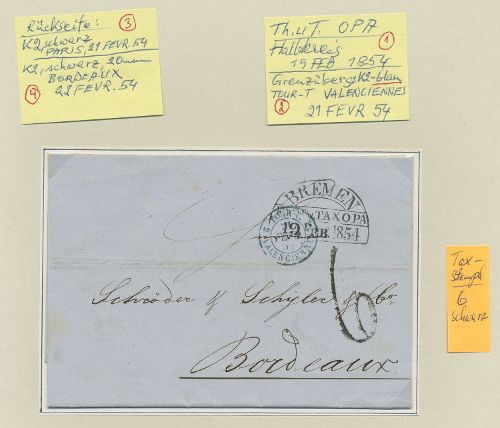 Rückseite: ③
K2, schwarz
PARIS, 21 FEVR. 54
K2, schwarz, 20mm
BORDEAUX
④ 22 FEVR. 54
Th. u T. OPA
Halbkreis ①
19 FEB 1854
Grenzüberg. K2-blau
TOUR-T VALENCIENNES
② 21 FEVR 54
BREMEN
TAXOPA
19 FEB. 1854
VALENCIENNES
6
Schröder & Schÿler & Co.
Bordeaux.
Tax-
stempel
6
schwarz